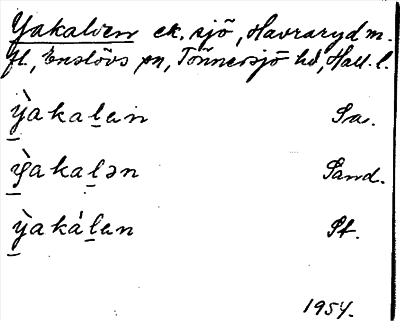 Yakalven ek. sjö, Havraryd m.
fl., Enslövs sn, Tönnersjö hd, Hall. l.
ỳ̠akaḻen Sa.
ỳ̠akaḻən Sand.
ỳ̠akáḻen St.
1954.